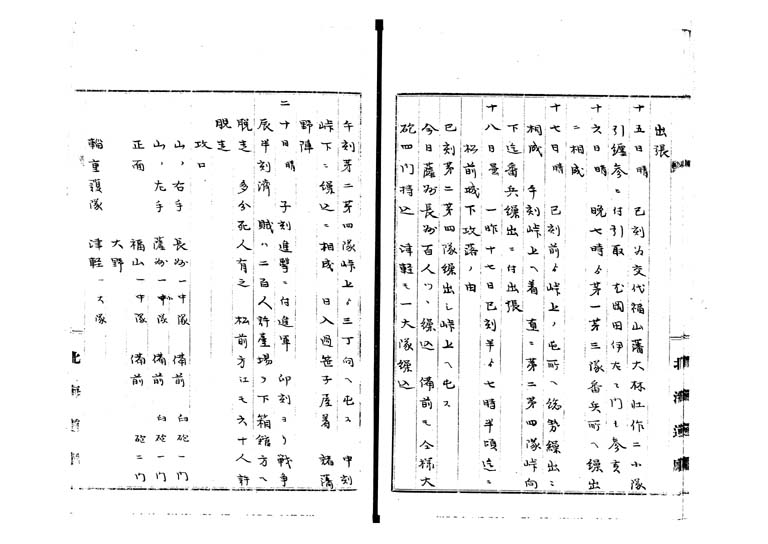 出張
十五日晴　已刻為交代福山藩大林壮作二小隊
引纏参ニ付引取　尤岡田伊左ヱ門も参会
十六日晴　晩七時ゟ第一第三隊番兵所へ繰出
ニ相成
十七日晴　已刻前ゟ峠上ノ屯所へ総勢繰出ニ
相成　午刻峠上へ着　直ニ第二第四隊峠向
下迄番兵繰出ニ付出張
十八日曇　一昨十七日已刻半ゟ七時半頃迄ニ
松前城下攻落ノ由
已刻第二第四隊繰出し峠上へ屯ス
今日薩州長州百人ツヽ繰込　備前も仝様大
砲四門持込　津軽も一大隊繰込
午刻第二第四隊峠上ゟ三丁向へ屯ス　申刻
峠下ニ繰込ニ相成　日入過笹子屋着　諸藩
野陣
二十日晴　子刻進撃ニ付進軍　卯刻ヨリ戦争
辰半刻済　賊ハ二百人許台場ヲ下箱館方へ
脱走　多分死人有之　松前方江も六十人許
脱走
攻口
山ノ右手　長州一中隊　備前　白砲一門
山ノ左手　薩州一中隊　備前　臼砲一門
正面　福山一中隊　備前　砲二門
大野
輜重護隊　津軽一大隊
北海道庁